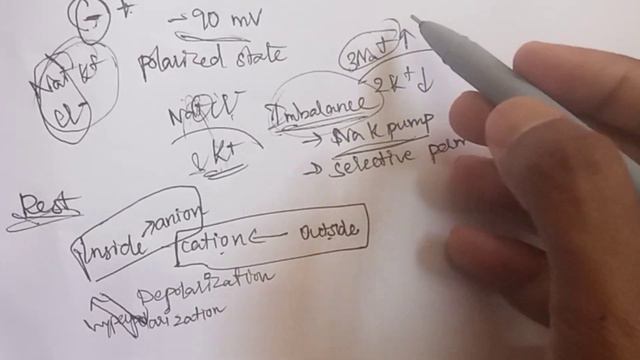 - +
-90 mV
polarized state
Na+ K+
Cl-
Na+ Cl-
& K+
Imbalance
3Na+ ↑
2K+ ↓
→ Na K pump
→ selective perm
Rest
Inside → anion
cation ← outside
Depolarization
hyperpolarization